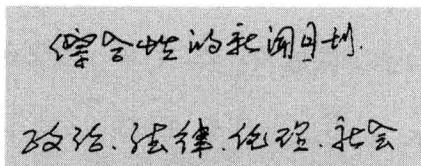 综合性的新闻月刊.
政治.法律.伦理.社会